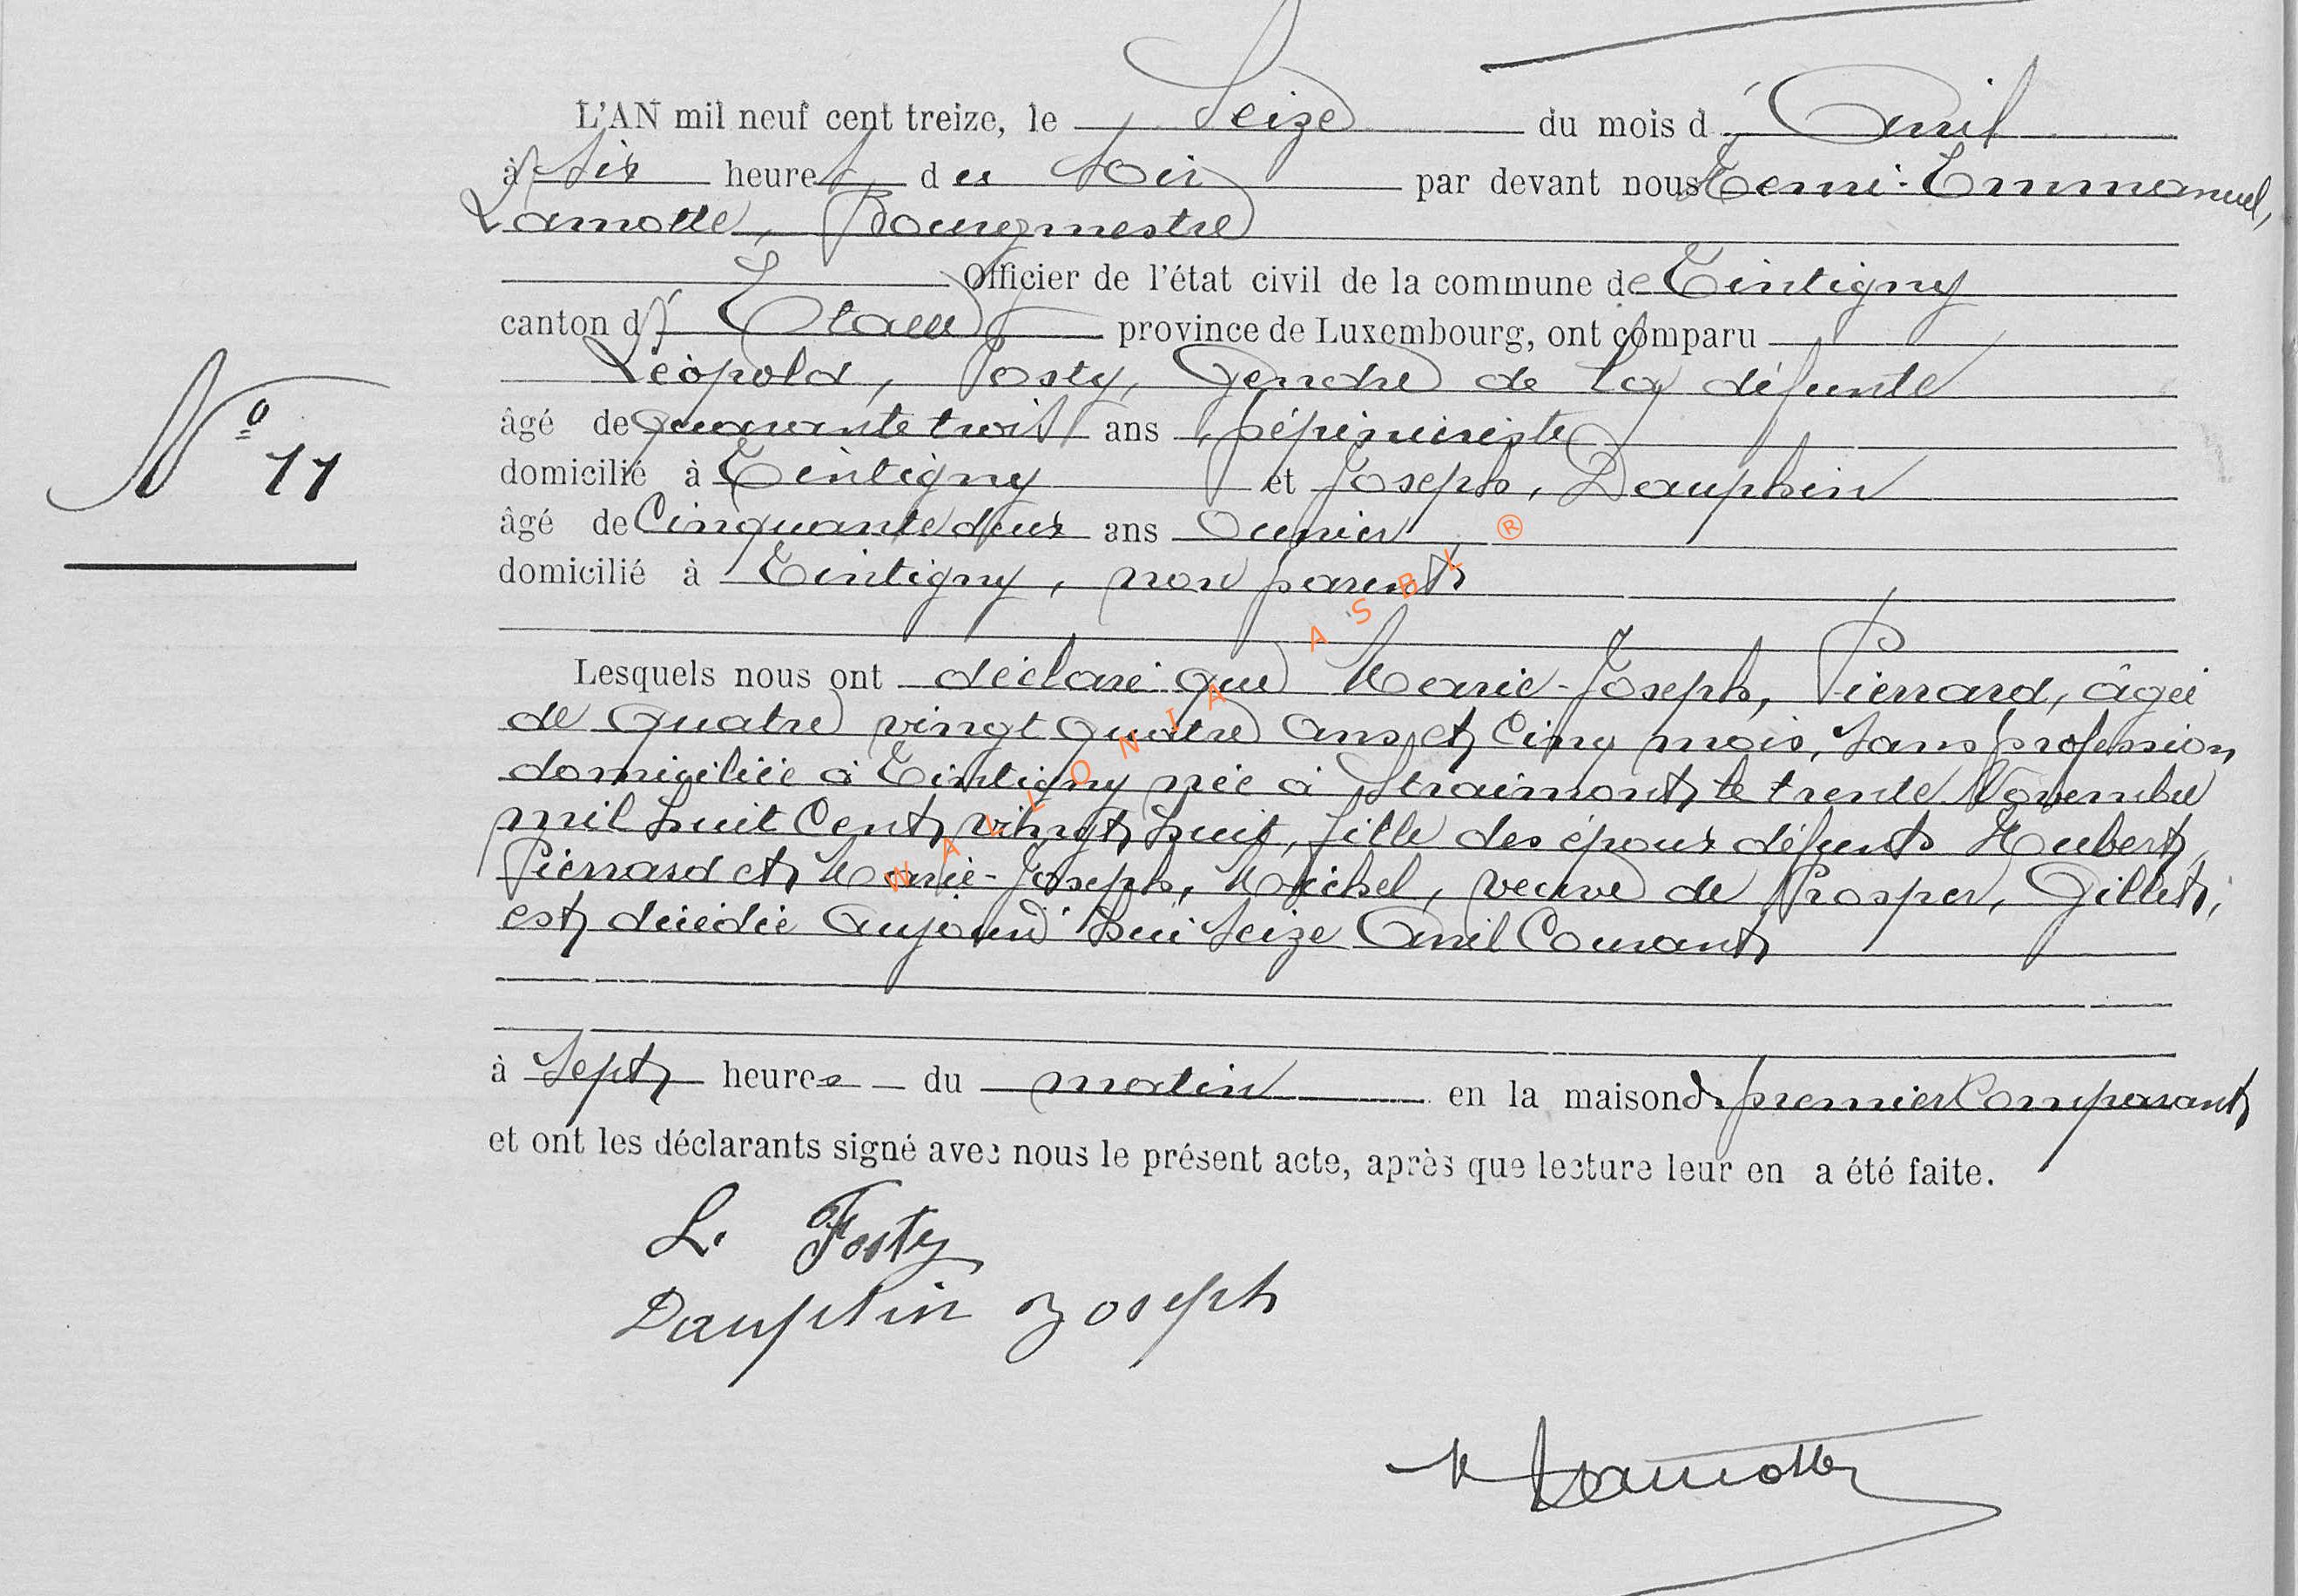 L'AN mil neuf cent treize, le Seize du mois d'Avril
à Six heures du Soir par devant nous Henri-Emmanuel,
Lamotte, Bourgmestre
Officier de l'état civil de la commune de Tintigny
canton d'Etalle province de Luxembourg, ont comparu
Léopold, Fosty, Gendre de la défunte
âgé de quarante trois ans, pépiniériste
domicilié à Tintigny et Joseph, Dauphin
âgé de Cinquante deux ans Ouvrier
domicilié à Tintigny, non parent
N° 11
Lesquels nous ont déclaré que Marie-Joseph, Pierrard, âgée
de quatre vingt quatre ans et Cinq mois, Sans profession
domiciliée à Tintigny née à Straimont le trente Novembre
mil huit Cent vingt huit, fille des époux défunts Hubert,
Pierrard et Marie-Joseph, Michel, veuve de Prosper, Gillet,
est décédée aujourd'hui Seize Avril Courant
à Sept heures du matin en la maison du premier Comparant
et ont les déclarants signé avec nous le présent acte, après que lecture leur en a été faite.
L. Fosty
Dauphin Joseph
H Lamotte
WALLONIA ASBL ®